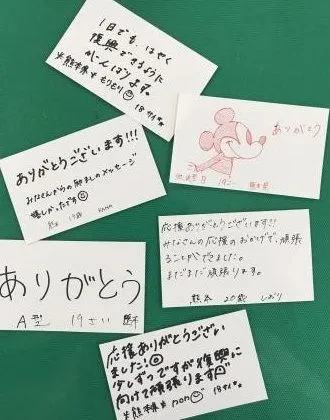 1日でも、はやく
復興できるように
がんばります。
※熊本県 もりもり 18才
ありがとう
ありがとうございます!!!
みなさんからの励ましのメッセージ
嬉しかったです
熊本 19歳 KANA
応援ありがとうございます!!
みなさんの応援のおかげで、頑張
ることができました。
まだまだ頑張ります。
熊本 20歳 しおり
ありがとう
A型 19さい
応援ありがとうござい
ました!
少しずつですが復興に
向けて頑張ります
※熊本県 pon 18才